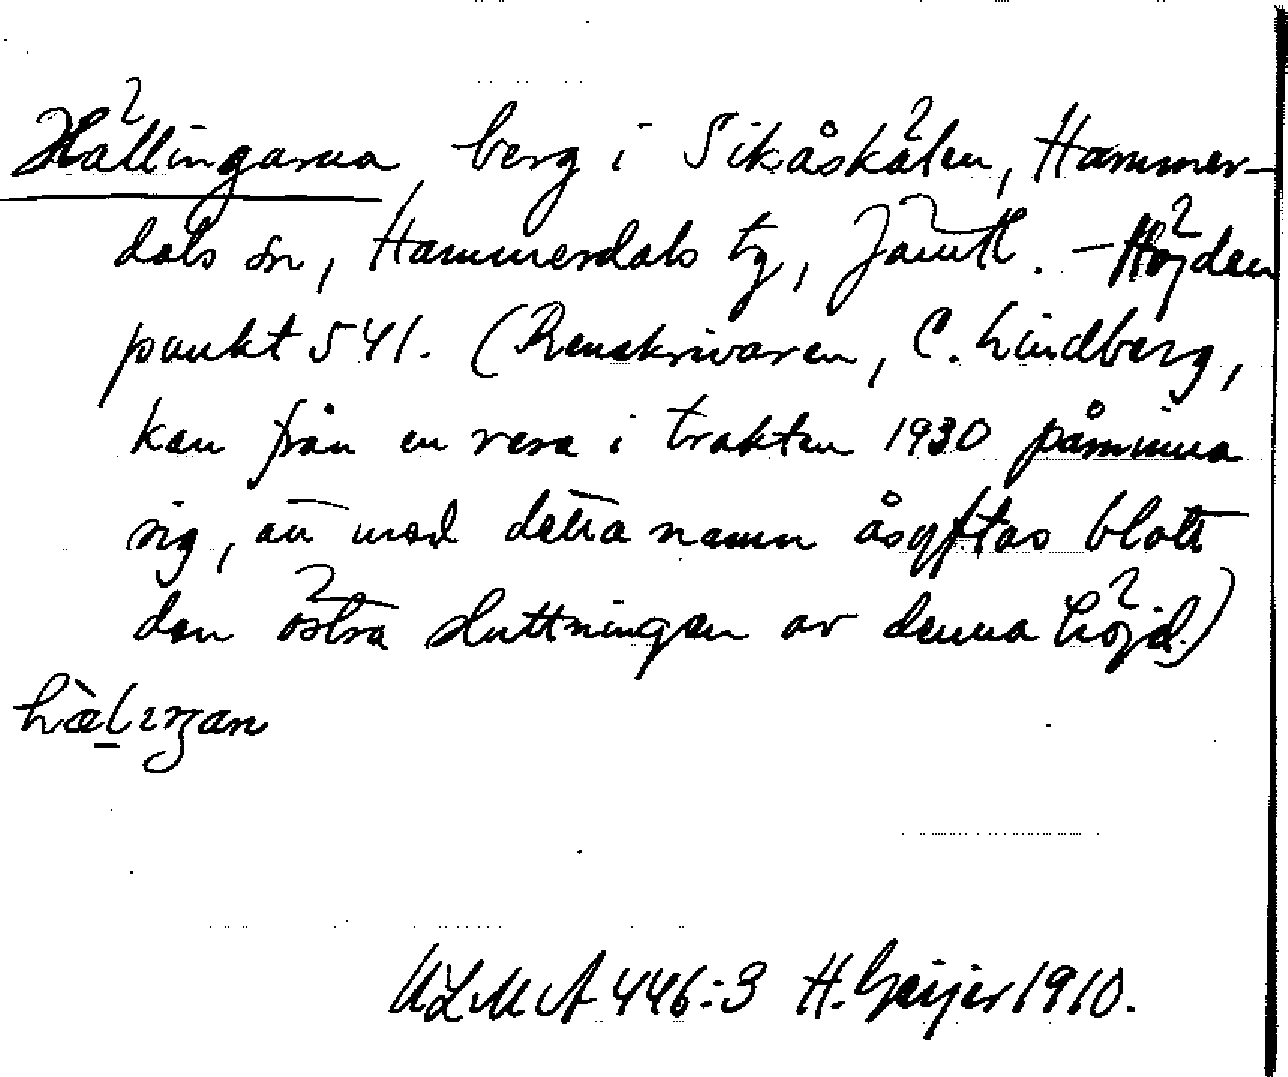 Hällingarna, berg i Sikåskälen, Hammer-
dals sn, Hammerdals tg, Jämtl. – Höjden
punkt 541. (Renskrivaren, C. Lindberg,
kan från en resa i trakten 1930 påminna
sig, att med detta namn åsyftas blott
den östra sluttningen av denna höjd.)
hà̀lıŋan
ULMA 446:3 H. Geijer 1910.